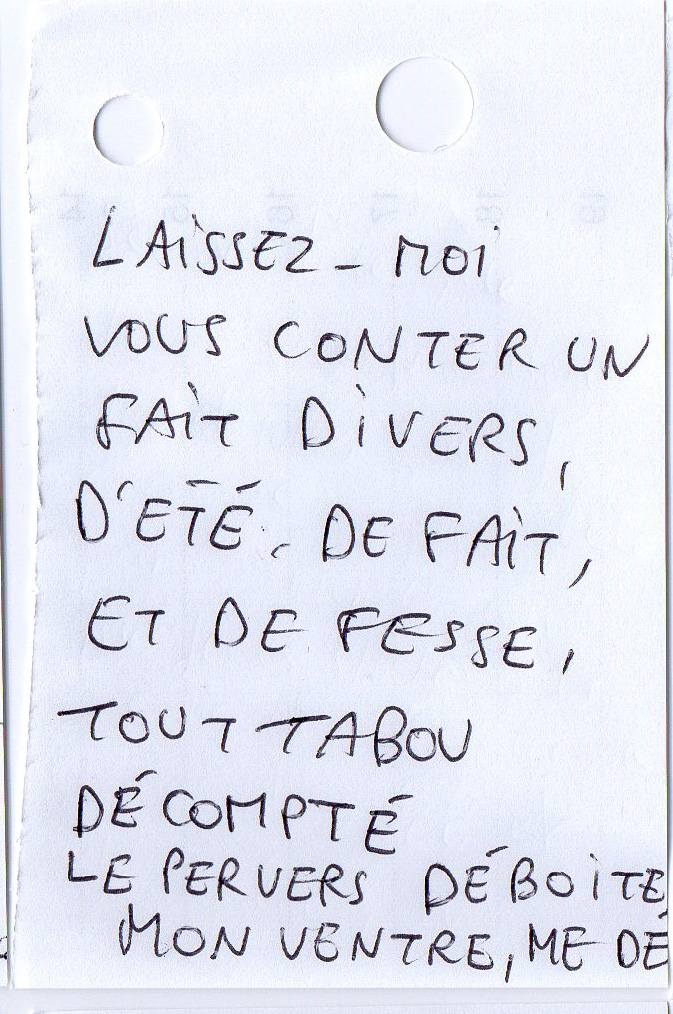 LAiSSEZ - MOi
VOUS CONTER UN
FAiT DiVERS,
D'ÉTÉ. DE FAiT,
ET DE FESSE,
TOUT TABOU
DÉCOMPTÉ
LE PERVERS DÉBOiTE
MON VENTRE, ME DÉ